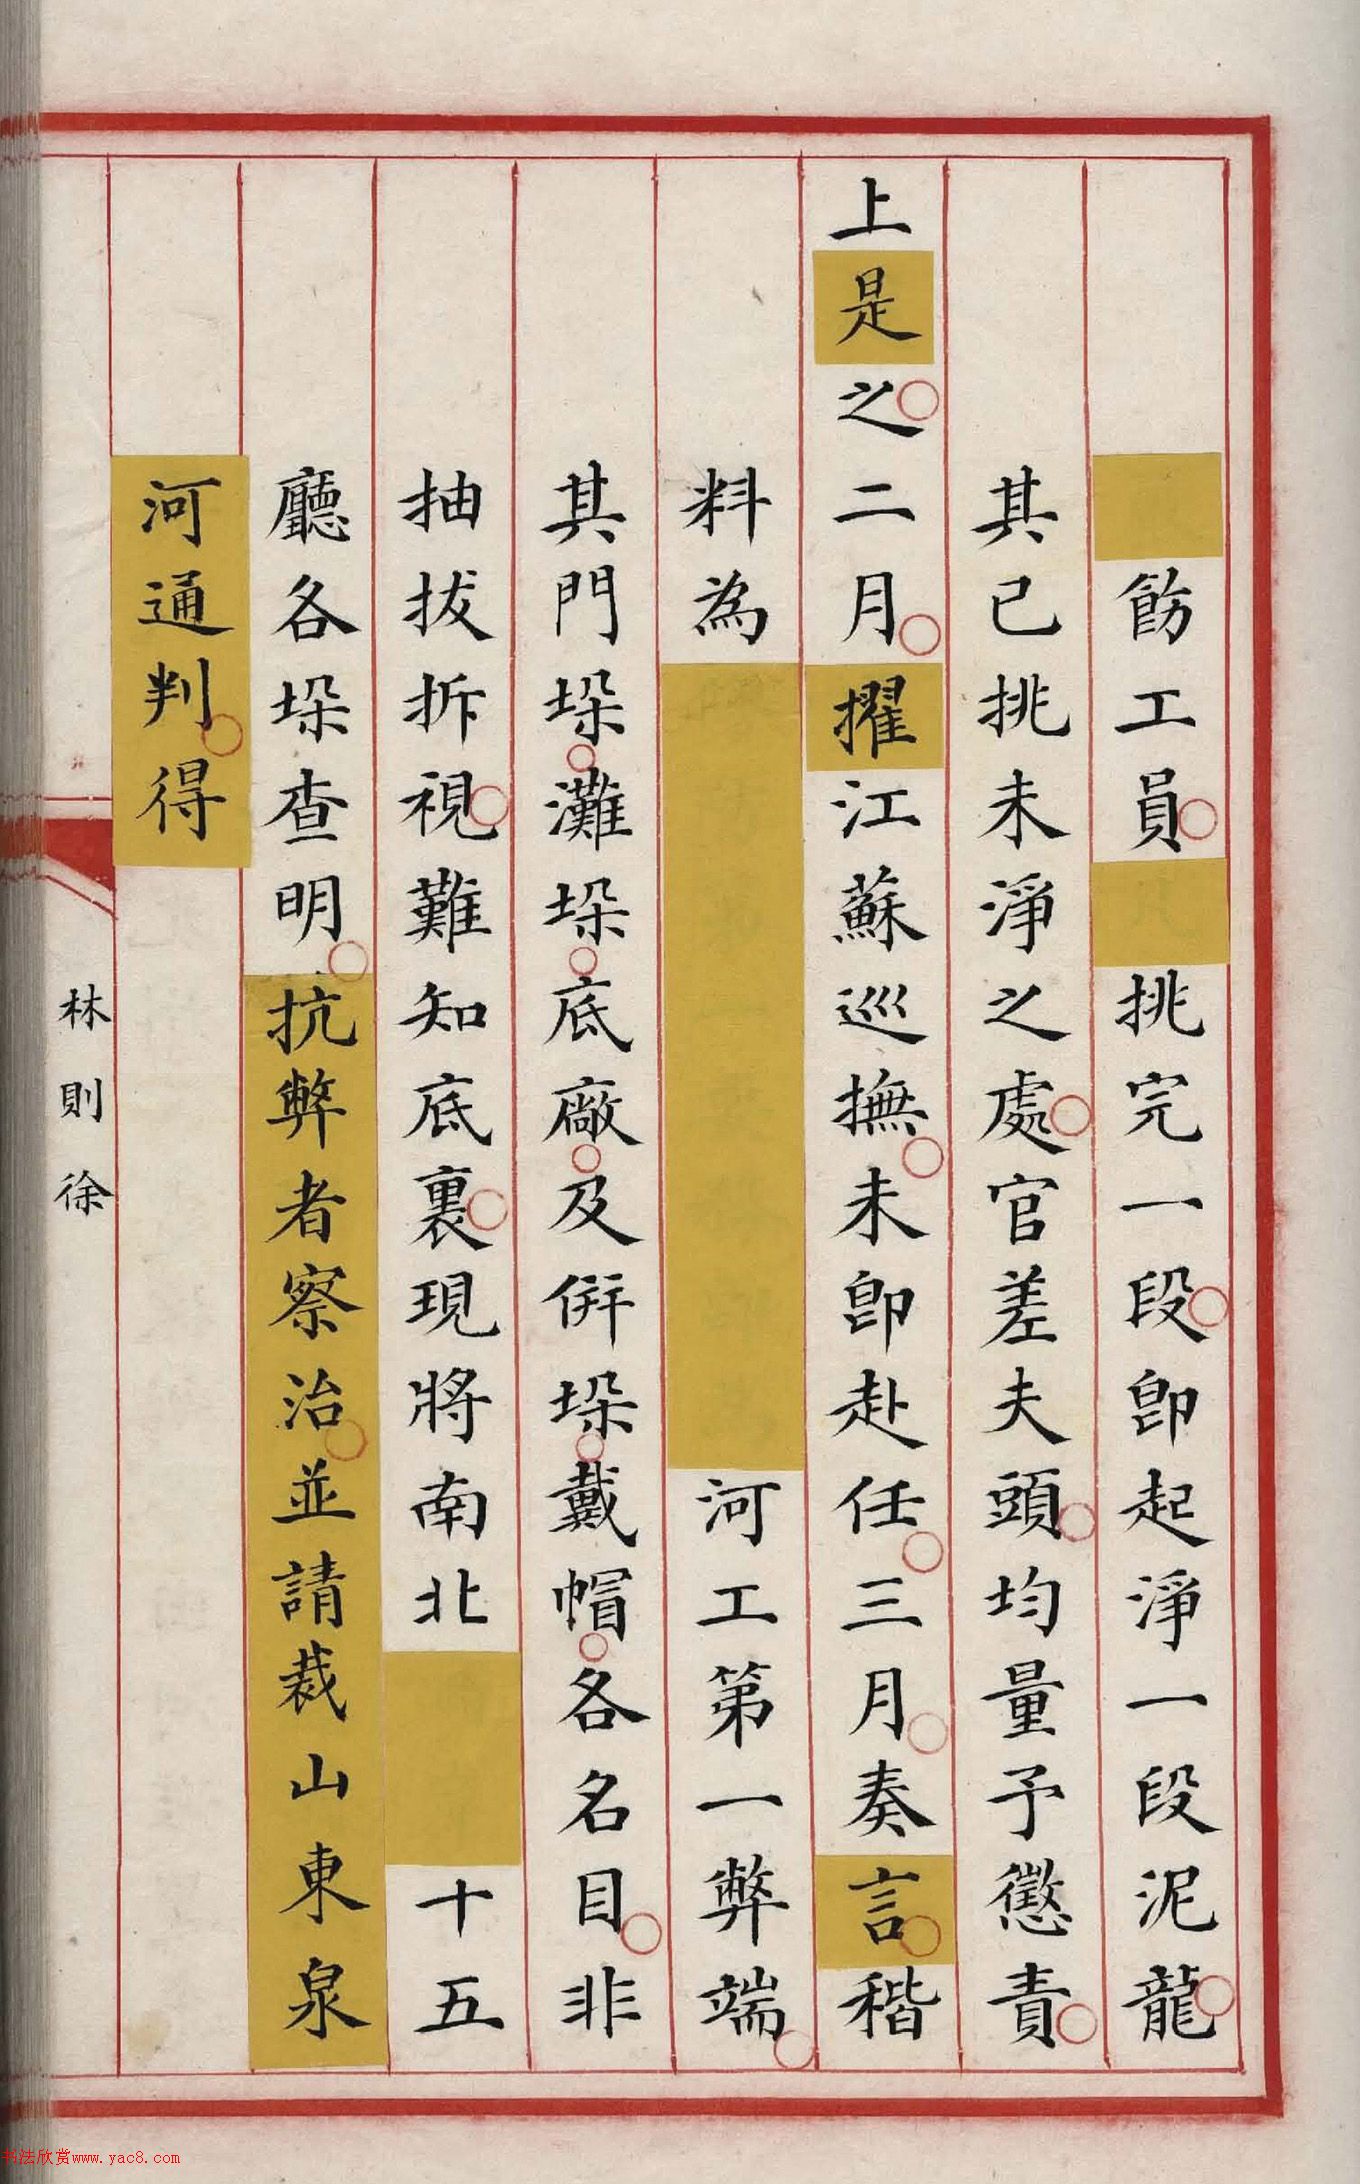 飭工員挑完一段卽起淨一段泥龍
其已挑未淨之處官差夫頭均量予懲責
上是之二月擢江蘇巡撫未卽赴任三月奏言稭
料為河工第一弊端
其門垜灘垜底廠及併垜戴帽各名目非
抽拔拆視難知底裏現將南北十五
廳各垜查明抗弊者察治並請裁山東泉
河通判得
林則徐
书法欣赏www.yac8.com